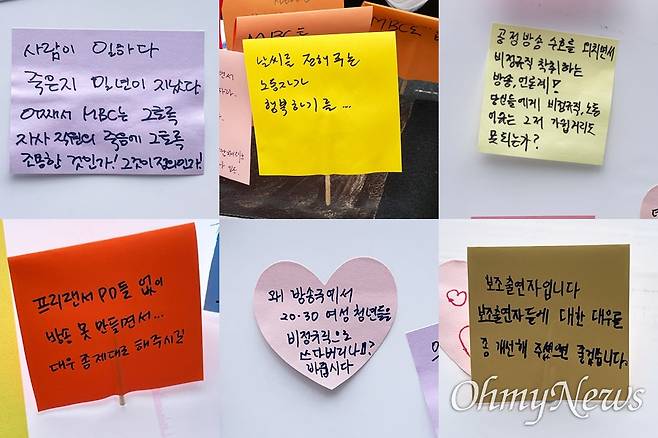 사람이 일하다
죽은지 일년이 지났다
어째서 MBC는 그토록
자사 직원의 죽음에 그토록
조용한 것인가! 그것이 정의인가!
MBC도
MBC는
날씨를 전해 주는
노동자가
행복하기를 ...
공정방송 수호을 외치면서
비정규직 착취하는
방송, 언론계!
당신들에게 비정규직, 노동
이슈는 그저 가십거리도
못 되는가?
프리랜서 PD들 없이
방송 못 만들면서...
대우 좀 제대로 해주시길
왜 방송국에서
20·30 여성 청년들을
비정규직으로
쓰다버리나요?
바꿉시다
보조출연자입니다
보조출연자들에 대한 대우를
좀 개선해 주셨으면 좋겠습니다.
OhmyNews